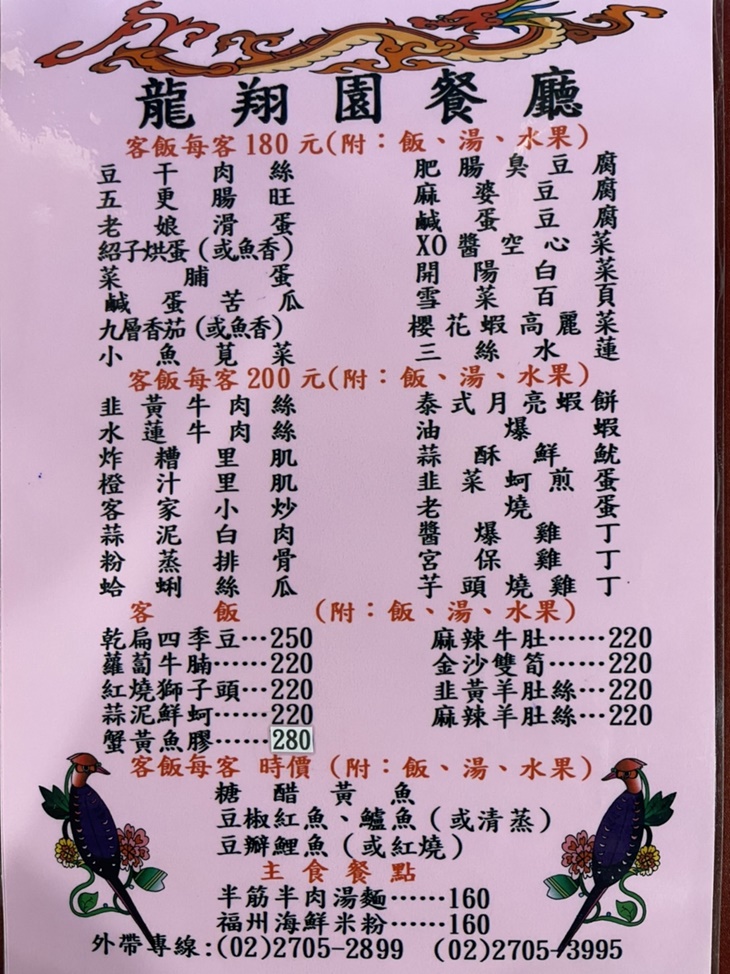 龍翔園餐廳
客飯每客180元(附：飯、湯、水果)
豆干肉絲
五更腸旺
老娘滑蛋
紹子烘蛋(或魚香)
菜脯蛋
鹹蛋苦瓜
九層香茄(或魚香)
小魚莧菜
肥腸臭豆腐
麻婆豆腐
鹹蛋豆腐
XO醬空心菜
開陽白菜
雪菜百頁
櫻花蝦高麗菜
三絲水蓮
客飯每客200元(附：飯、湯、水果)
韭黃牛肉絲
水蓮牛肉絲
炸糟里肌
橙汁里肌
客家小炒
蒜泥白肉
粉蒸排骨
蛤蜊絲瓜
泰式月亮蝦餅
油爆蝦
蒜酥鮮魷
韭菜蚵煎蛋
老燒蛋
醬爆雞丁
宮保雞丁
芋頭燒雞丁
客飯 (附：飯、湯、水果)
乾扁四季豆…250
蘿蔔牛腩……220
紅燒獅子頭…220
蒜泥鮮蚵……220
蟹黃魚膠……280
麻辣牛肚……220
金沙雙筍……220
韭黃羊肚絲…220
麻辣羊肚絲…220
客飯每客 時價 (附：飯、湯、水果)
糖醋黃魚
豆椒紅魚、鱸魚(或清蒸)
豆瓣鯉魚(或紅燒)
主食餐點
半筋半肉湯麵……160
福州海鮮米粉……160
外帶專線:(02)2705-2899 (02)2705-3995